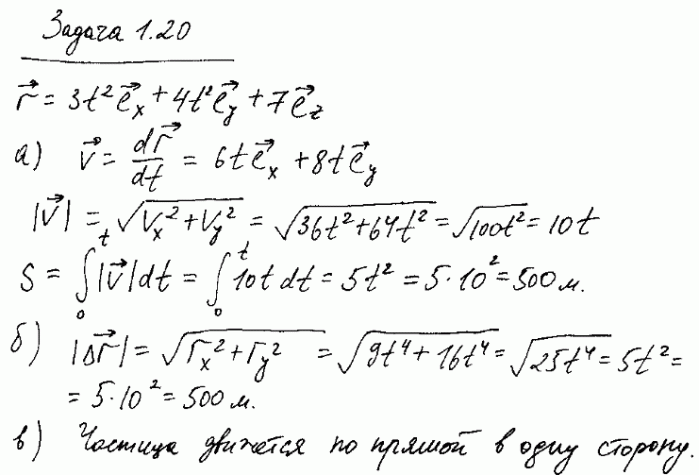 Задача 1.20
r⃗ = 3t²e⃗x + 4t²e⃗y + 7e⃗z
а) v⃗ = dr⃗/dt = 6te⃗x + 8te⃗y
|v⃗| = √(Vx² + Vy²) = √(36t² + 64t²) = √(100t²) = 10t
S = ∫₀ᵗ |v⃗|dt = ∫₀ᵗ 10t dt = 5t² = 5·10² = 500 м.
б) |Δr⃗| = √(rx² + ry²) = √(9t⁴ + 16t⁴) = √(25t⁴) = 5t² =
= 5·10² = 500 м.
в) Частица движется по прямой в одну сторону.